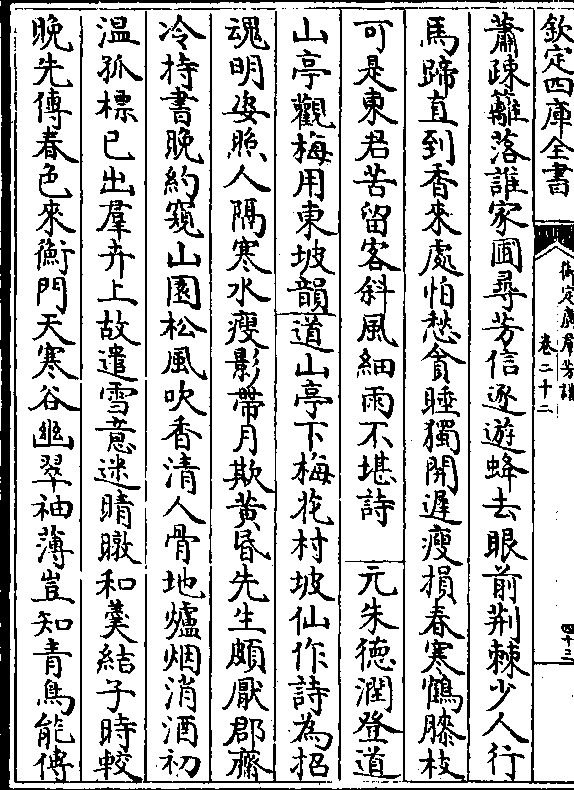 欽定四庫全書
御定廣羣芳譜
卷二十二
四十三
蕭疎籬落誰家圃尋芳信逐遊蜂去眼前荆棘少人行
馬蹄直到香來處怕愁貪睡獨開遲瘦損春寒鶴膝枝
可是東君苦留客斜風細雨不堪詩 元朱德潤登道
山亭觀梅用東坡韻道山亭下梅花村坡仙作詩為招
魂明姿照人隔寒水瘦影帶月欺黃昏先生頗厭郡齋
冷持書晚約窺山園松風吹香清人骨地爐烟消酒初
温孤標已出羣卉上故遣雪意迷晴暾和羹結子時較
晚先傳春色來衡門天寒谷幽翠袖薄豈知青鳥能傳